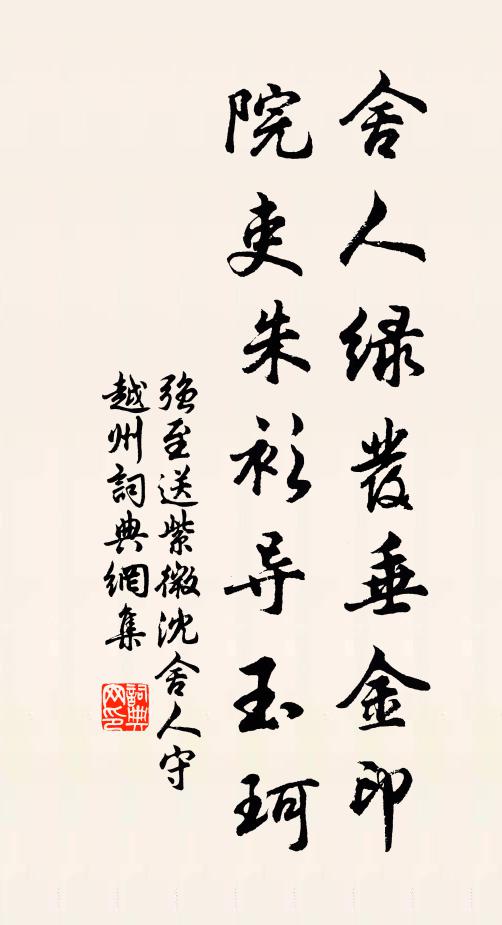 舍人緑發垂金印
院吏朱衫导玉珂
强至送紫微沈舍人守
越州詞典網集
詞典网印